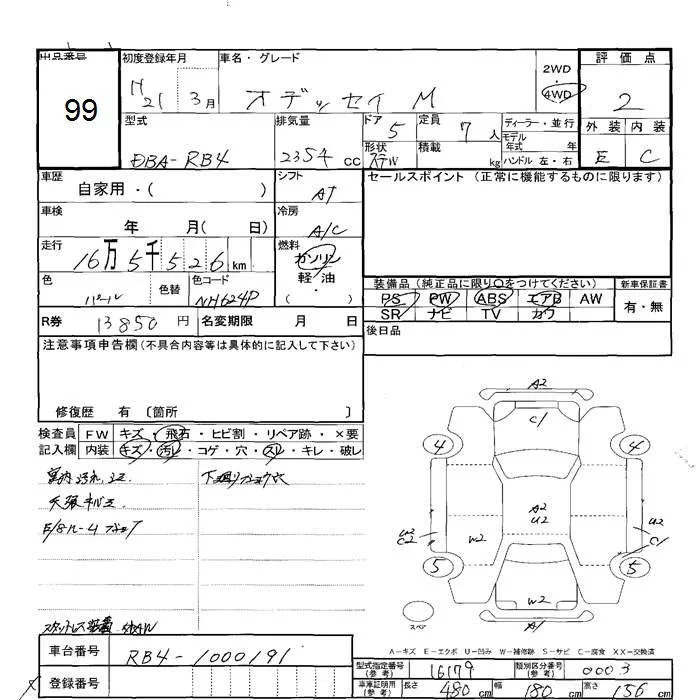 出品番号 初度登録年月 車名・グレード 2WD 評価点
99 H21 3月 オデッセイ M 4WD 2
型式 排気量 ドア 5 定員 7人 ディーラー・並行 外装 内装
DBA-RB4 2354 cc 形状 積載 kg モデル年式 年 E C
ハンドル 左・右
車歴 自家用・( ) シフト AT セールスポイント (正常に機能するものに限ります)
車検 年 月( 日) 冷房 A/C
走行 16万5千526 km 燃料 ガソリン
色 パール 色替 色コード NH624P 軽・油 ( ) 装備品 (純正品に限り○をつけてください) 新車保証書
PS PW ABS エアB AW 有・無
R券 13850円 名変期限 月 日 SR ナビ TV カワ
注意事項申告欄 (不具合内容等は具体的に記入して下さい) 後日品
修復歴 有 〔箇所 〕
検査員 FW キズ・飛石・ヒビ割・リペア跡・×要
記入欄 内装 キズ・汚レ・コゲ・穴・スレ・キレ・破レ
A2
C1
4 4
A2
U2
U2
C2 W2 U2
C1
5 5
W2
A1
スペア
A-キズ E-エクボ U-凹み W-補修跡 S-サビ C-腐食 XX-交換済
車台番号 RB4-1000191 型式指定番号 (参考) 16179 類別区分番号 (参考) 0003
登録番号 車庫証明用 (参考) 長さ 480 cm 幅 180 cm 高さ 156 cm